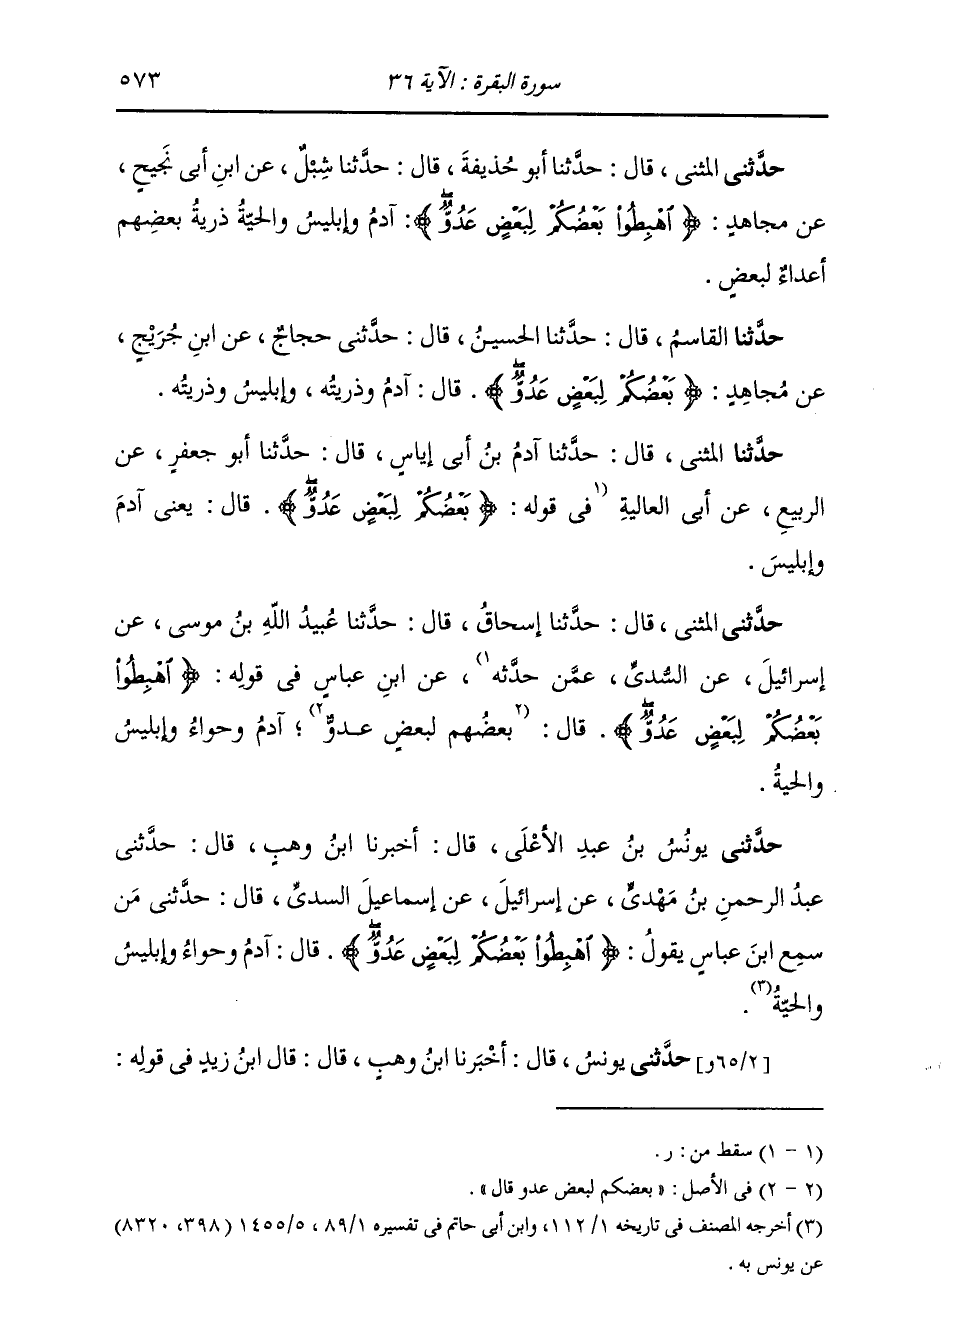 سورة البقرة : الآية ٣٦ ٥٧٣
حدَّثنى المثنى ، قال : حدَّثنا أبو حُذيفةَ ، قال : حدَّثنا شِبْلٌ ، عن ابنِ أبى نَجيحٍ ،
عن مجاهدٍ : ﴿ ٱهْبِطُوا۟ بَعْضُكُمْ لِبَعْضٍ عَدُوٌّ ۖ ﴾ : آدمُ وإبليسُ والحيّةُ ذريةُ بعضِهم
أعداءٌ لبعضٍ .
حدَّثنا القاسمُ ، قال : حدَّثنا الحسينُ ، قال : حدَّثنى حجاجٌ ، عن ابنِ جُرَيْجٍ ،
عن مُجاهِدٍ : ﴿ بَعْضُكُمْ لِبَعْضٍ عَدُوٌّ ۖ ﴾ . قال : آدمُ وذريتُه ، وإبليسُ وذريتُه .
حدَّثنا المثنى ، قال : حدَّثنا آدمُ بنُ أبى إياسٍ ، قال : حدَّثنا أبو جعفرٍ ، عن
الربيعِ ، عن أبى العاليةِ (١فى قوله : ﴿ بَعْضُكُمْ لِبَعْضٍ عَدُوٌّ ۖ ﴾ . قال : يعنى آدمَ
وإبليسَ .
حدَّثنى المثنى ، قال : حدَّثنا إسحاقُ ، قال : حدَّثنا عُبيدُ اللّهِ بنُ موسى ، عن
إسرائيلَ ، عن السُّدىِّ ، عمَّن حدَّثه١) ، عن ابنِ عباسٍ فى قولِه : ﴿ ٱهْبِطُوا۟
بَعْضُكُمْ لِبَعْضٍ عَدُوٌّ ۖ ﴾ . قال : (٢بعضُهم لبعضٍ عدوٌّ٢) ؛ آدمُ وحواءُ وإبليسُ
والحيةُ .
حدَّثنى يونُسُ بنُ عبدِ الأعْلَى ، قال : أخبرنا ابنُ وهبٍ ، قال : حدَّثنى
عبدُ الرحمنِ بنُ مَهْدىٍّ ، عن إسرائيلَ ، عن إسماعيلَ السدىِّ ، قال : حدَّثنى مَن
سمِع ابنَ عباسٍ يقولُ : ﴿ ٱهْبِطُوا۟ بَعْضُكُمْ لِبَعْضٍ عَدُوٌّ ۖ ﴾ . قال : آدمُ وحواءُ وإبليسُ
والحيّةُ(٣) .
[٦٥/٢و] حدَّثنى يونسُ ، قال : أخْبَرنا ابنُ وهبٍ ، قال : قال ابنُ زيدٍ فى قولِه :
(١ - ١) سقط من : ر .
(٢ - ٢) فى الأصل : « بعضكم لبعض عدو قال » .
(٣) أخرجه المصنف فى تاريخه ١١٢/١، وابن أبى حاتم فى تفسيره ٨٩/١ ، ١٤٥٥/٥ (٣٩٨، ٨٣٢٠)
عن يونس به .